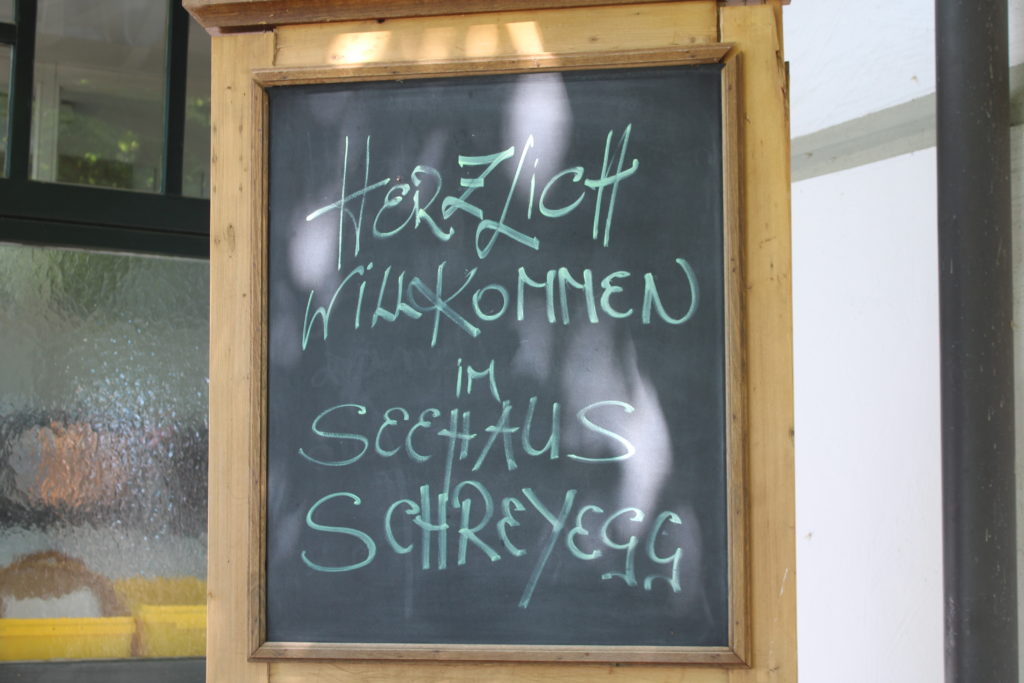 HERZLICH
WILLKOMMEN
IM
SEEHAUS
SCHREYEGG